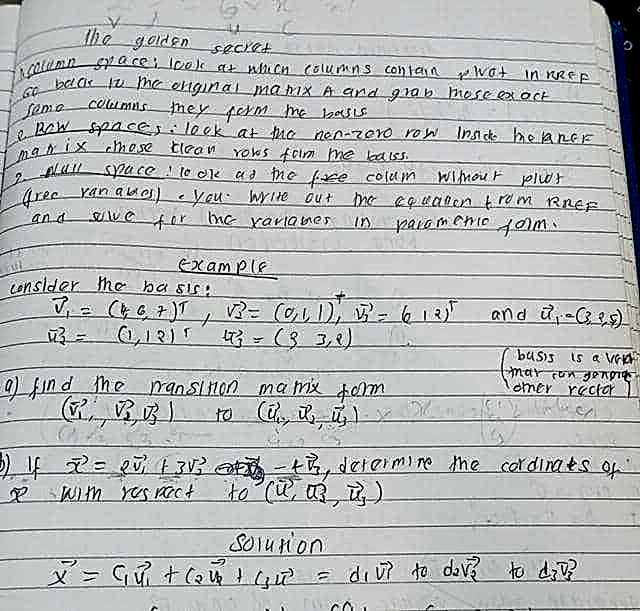 The golden secret
column space: look at which columns contain pivot in RREF
go back to the original matrix A and grab those exact
same columns they form the basis
2. Row space: look at the non-zero row inside the RREF
matrix those clean rows form the basis.
3 Null space: look at the free colum without pivot
(free variables). You write out the equation from RREF
and solve for the variables in parametric form.
Example
consider the basis:
V₁ = (4, 6, 7)ᵀ, V₂ = (0, 1, 1)ᵀ, V₃ = (0 1 2)ᵀ and U₁ = (3, 2, 5)
U₂ = (1, 1 2)ᵀ U₃ = (3 3, 2)
(basis is a
that can
other vector)
a) find the transition matrix form
(V₁, V₂, V₃) to (U₁, U₂, U₃)
b) If x = 2V₁ + 3V₂ - + V₃, determine the cordinates of
x with respect to (U, U₂, U₃)
Solution
x = C₁U₁ + C₂U₂ + C₃U = d₁V₁ to d₂V₂ to d₃V₃